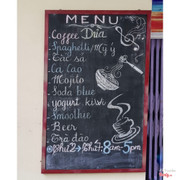 MENU
Coffee Dừa
Spaghetti/Mỳ ý
Tắc sả
Ca Cao
Mojito
Soda blue
yogurt kiwi
Smoothie
Beer
Trà đào
Thứ2 → Thứ7: 8am-5pm